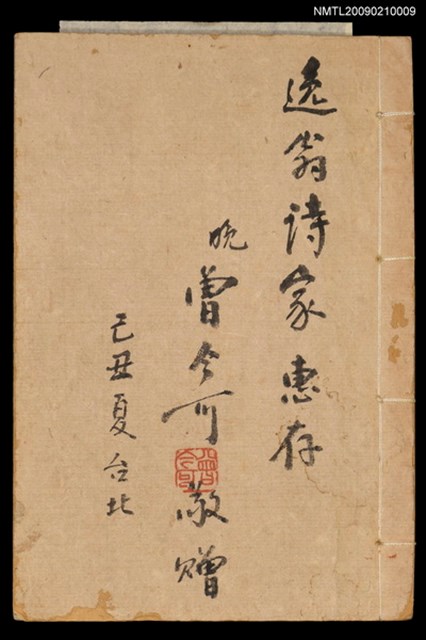 NMTL20090210009
逸翁詩家惠存
晚曾今可敬贈
己丑夏台北